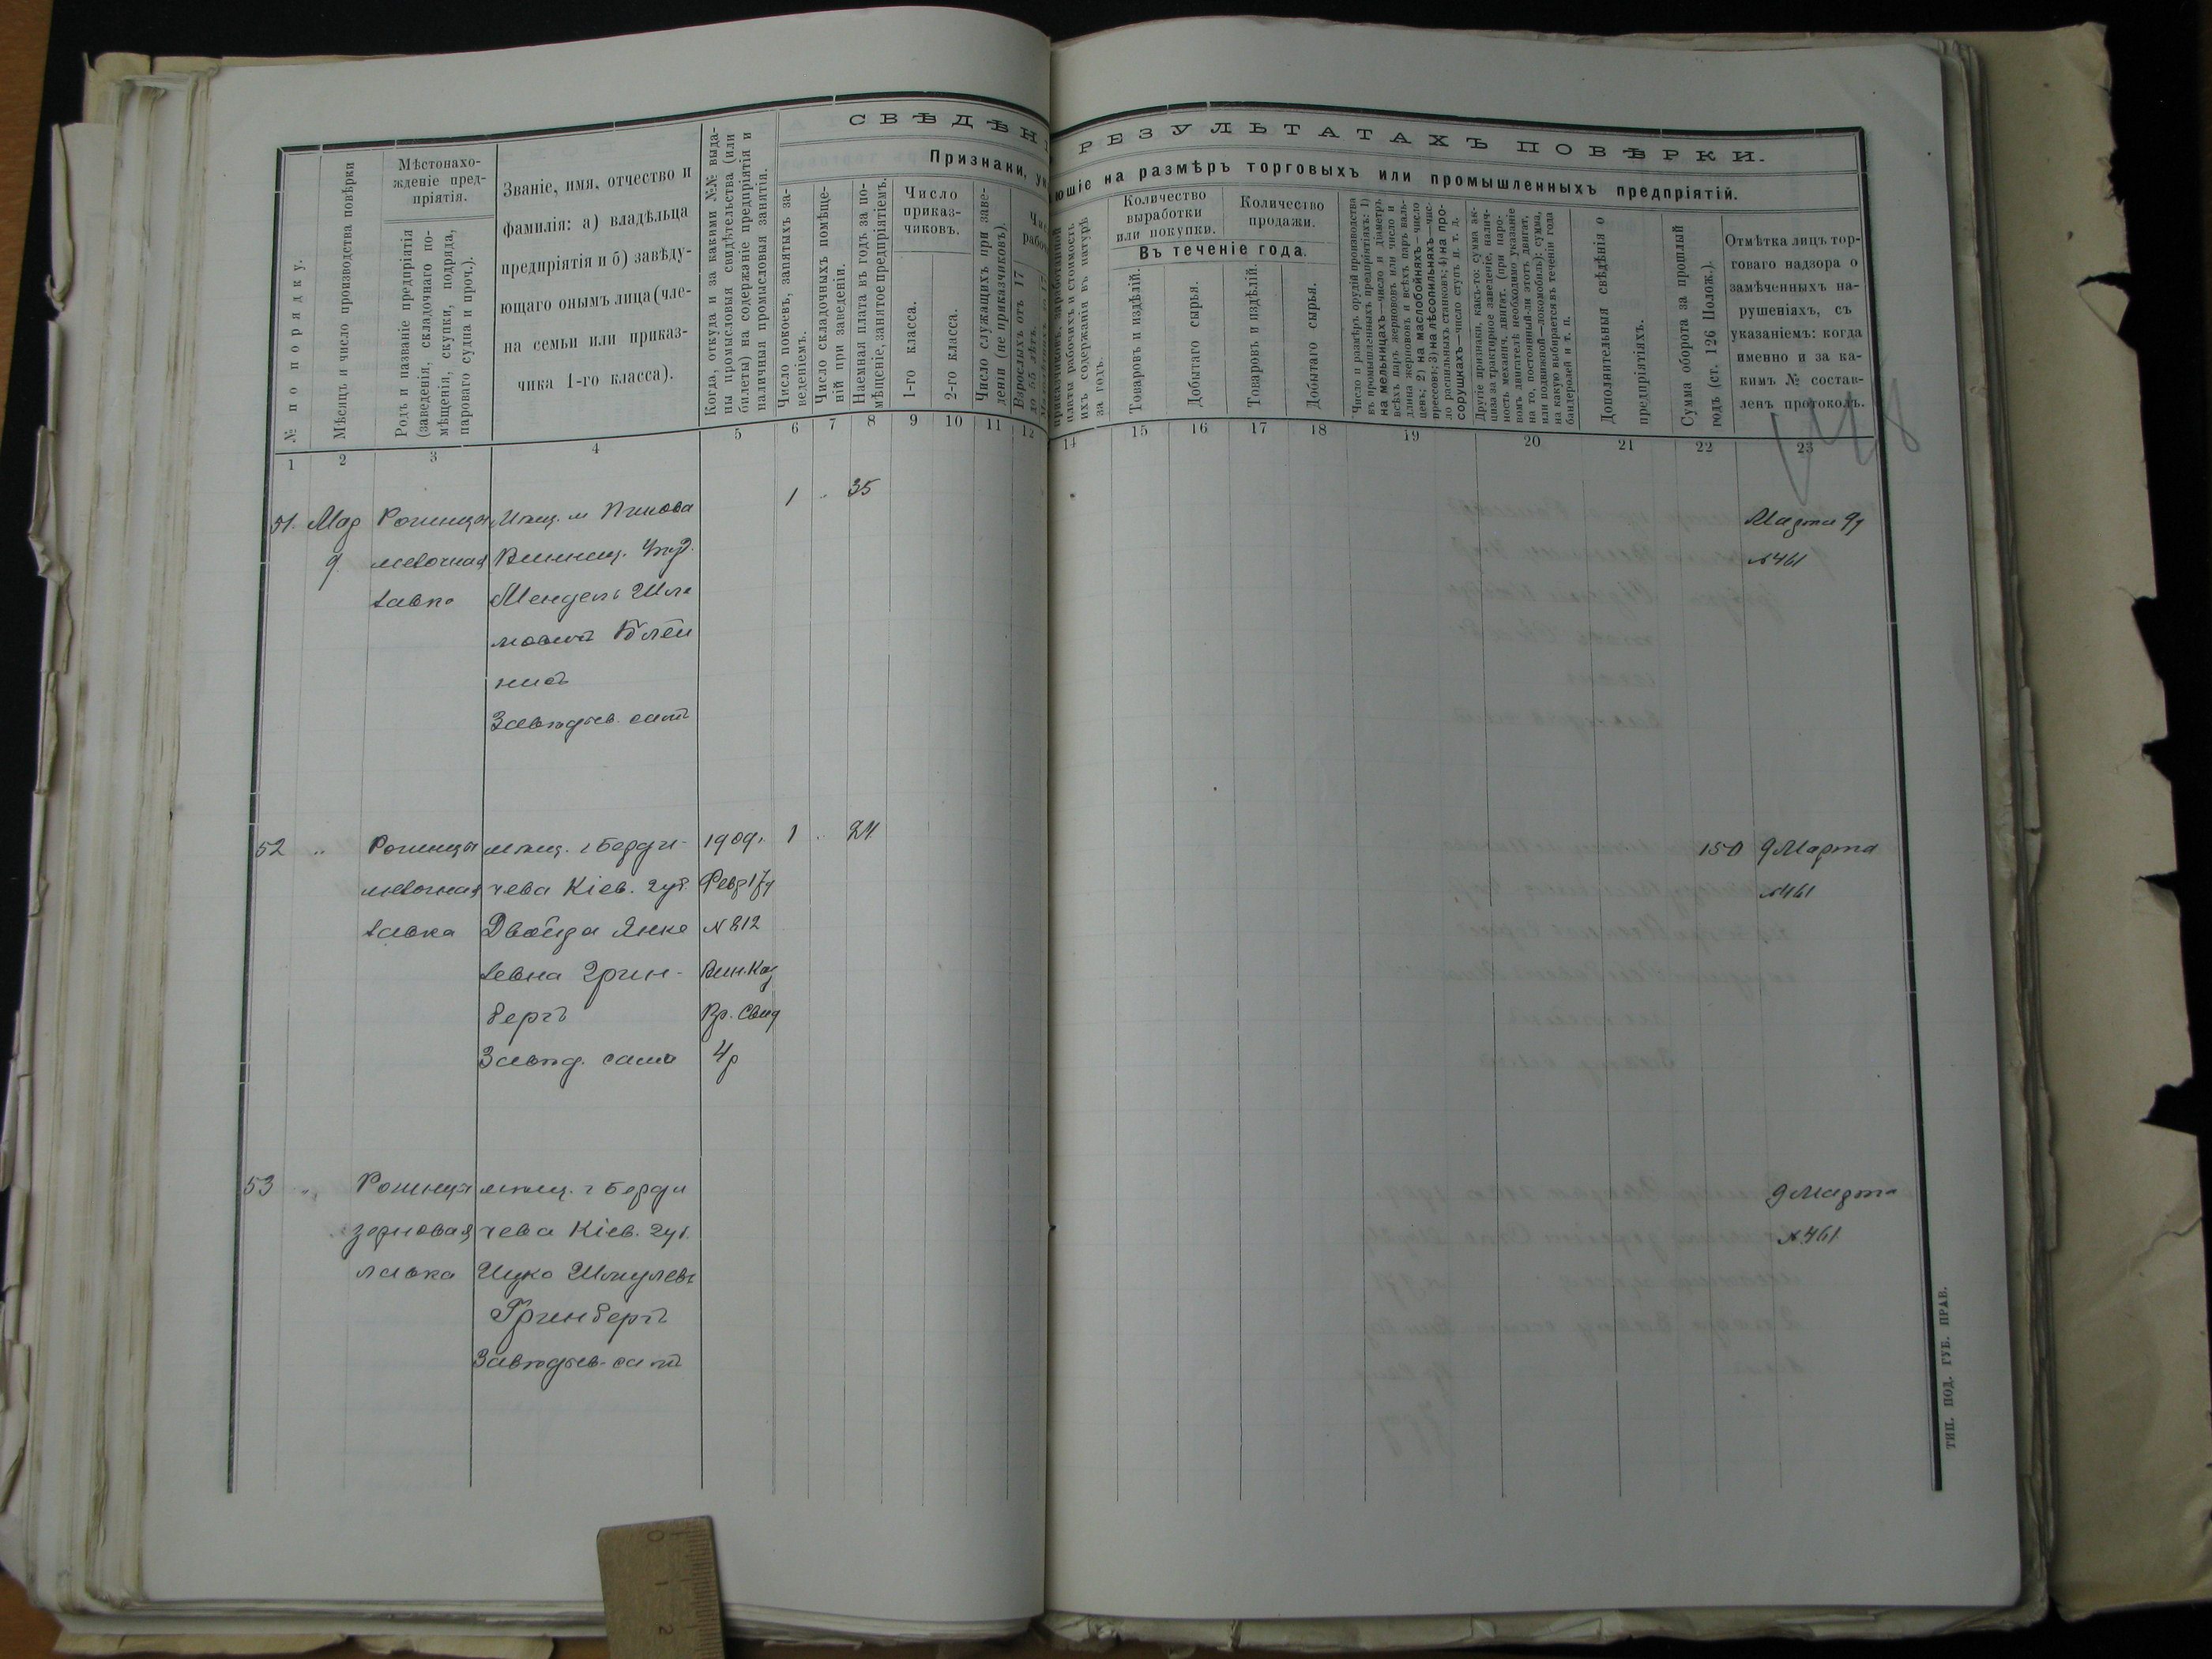 СВѢДѢН
РЕЗУЛЬТАТАХЪ ПОВѢРКИ.
Признаки, ук
ющіе на размѣръ торговыхъ или промышленныхъ предпріятій.
№ по порядку.
Мѣсяцъ и число производства повѣрки
Мѣстонахо-
жденіе пред-
пріятія.
Родъ и названіе предпріятія
(заведенія, складочнаго по-
мѣщенія, скупки, подряда,
пароваго судна и проч.).
Званіе, имя, отчество и
фамилія: а) владѣльца
предпріятія и б) завѣду-
ющаго онымъ лица (чле-
на семьи или приказ-
чика 1-го класса).
Когда, откуда и за какими №№ выда-
ны промысловыя свидѣтельства (или
билеты) на содержаніе предпріятія и
наличныя промысловыя занятія.
Число покоевъ, занятыхъ за-
веденіемъ.
Число складочныхъ помѣще-
ній при заведеніи.
Наемная плата въ годъ за по-
мѣщеніе, занятое предпріятіемъ.
Число
приказ-
чиковъ.
1-го класса.
2-го класса.
Число служащихъ при заве-
деніи (не приказчиковъ).
Взрослыхъ отъ 17
до 65 лѣтъ.
платы рабочихъ и стоимость
ихъ содержанія въ натурѣ
за годъ.
Количество
выработки
или покупки.
Количество
продажи.
Въ теченіе года.
Товаровъ и издѣлій.
Добытаго сырья.
Товаровъ и издѣлій.
Добытаго сырья.
Число и размѣръ орудій производства
въ промышленныхъ предпріятіяхъ: 1)
на мельницахъ—число и діаметръ
всѣхъ паръ жернововъ или число и
длина жернововъ и всѣхъ паръ валь-
цевъ; 2) на маслобойняхъ—число
прессовъ; 3) на лѣсопильняхъ—чис-
ло распильныхъ станковъ; 4) на про-
сорушкахъ—число ступъ и. т. д.
Другіе признаки, какъ-то: сумма ак-
циза за трактирное заведеніе, налич-
ность механич. двигат. (при паро-
вомъ двигателѣ необходимо указаніе
на то, постоянный-ли этотъ двигат.
или подвижной—локомобиль); сумма,
на какую выбирается въ теченіи года
бандеролей и т. п.
Дополнительныя свѣдѣнія о
предпріятіяхъ.
Сумма оборота за прошлый
годъ (ст. 126 Полож.).
Отмѣтка лицъ тор-
говаго надзора о
замѣченныхъ на-
рушеніяхъ, съ
указаніемъ: когда
именно и за ка-
кимъ № состав-
ленъ протоколъ.
1 2 3 4 5 6 7 8 9 10 11 12 14 15 16 17 18 19 20 21 22 23
51. Мар 1 35 Марта 9
9 мелочная Винниц. №461
лавка Мендель Шле
мовичъ Клей
Завѣдыв. самъ
52 мѣщ. г Берди- 1909. 1 24 150 9 Марта
мелочная чева Кіев. губ. Февр 17 №461
лавка Двойра Янке №812
левна Грин- Вин. Каз
бергъ Вр. Свид
Завѣд. сама 4р
53 мѣщ. г Берди 9 Марта
зерновая чева Кіев. губ. №461
лавка Ицко Шмулевъ
Гринбергъ
Завѣдыв. самъ
ТИП. ПОД. ГУБ. ПРАВ.
0 1 2